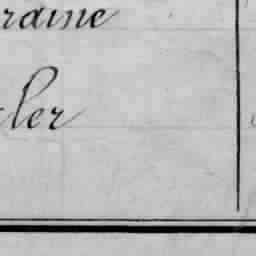 raine
ler